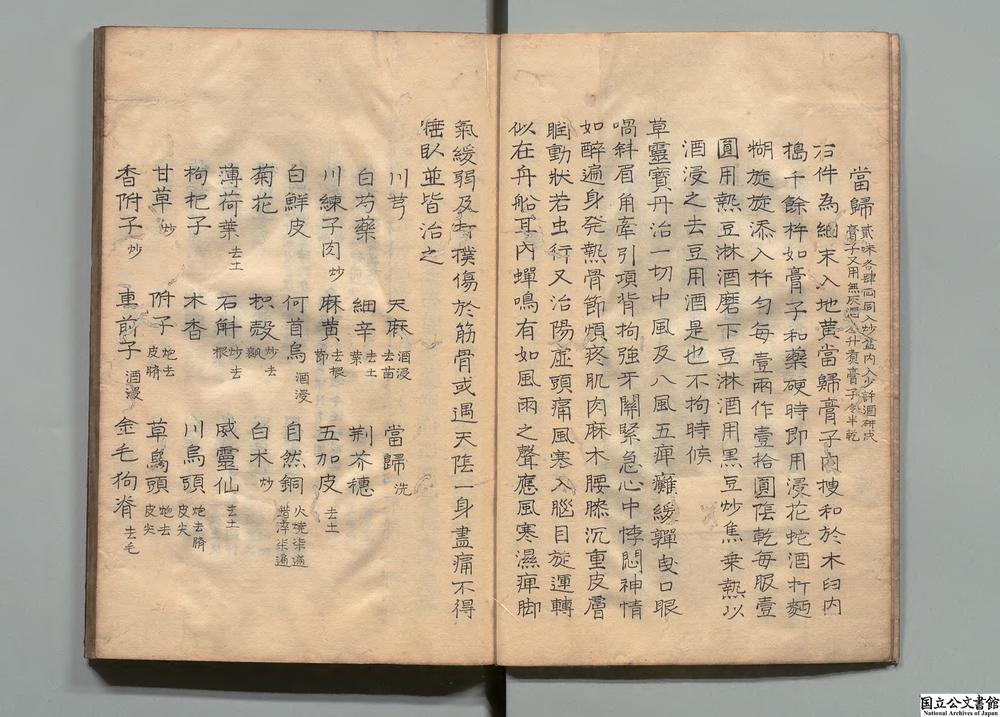 當歸 貳味各肆兩同入沙盆內入少許酒研成
膏子又用無灰酒 升煮膏子令半乾
右件為細末入地黃當歸膏子內搜和於木臼內
搗千餘杵如膏子和藥硬時即用浸花蛇酒打麵
糊旋旋添入杵勻每壹兩作壹拾圓陰乾每服壹
圓用熱豆淋酒磨下豆淋酒用黑豆炒焦乘熱以
酒浸之去豆用酒是也不拘時候
草靈寶丹治一切中風及八風五痺癱緩嚲曳口眼
喎斜眉角牽引項背拘強牙關緊急心中悸悶神情
如醉遍身発熱骨節煩疼肌肉麻木腰膝沉重皮膚
瞤動狀若虫行又治陽虛頭痛風寒入腦目旋運轉
似在舟船耳內蟬鳴有如風雨之聲應風寒濕痺脚
氣緩弱及打撲傷於筋骨或遇天陰一身盡痛不得
睡臥並皆治之
川芎 天麻 酒浸去苗 當歸 洗
白芍藥 細辛 去土葉 荆芥穗
川練子肉 炒 麻黃 去根節 五加皮 去土
白鮮皮 何首烏 酒浸 自然銅 火燒柒遍醋淬柒遍
菊花 枳殼 炒去穰 白朮 炒
薄荷葉 去土 石斛 炒去根 威靈仙 去土
枸杞子 木香 川烏頭 炮去臍皮尖
甘草 炒 附子 炮去皮臍 草烏頭 炮去皮尖
香附子 炒 車前子 酒浸 金毛狗脊 去毛
国立公文書館
National Archives of Japan